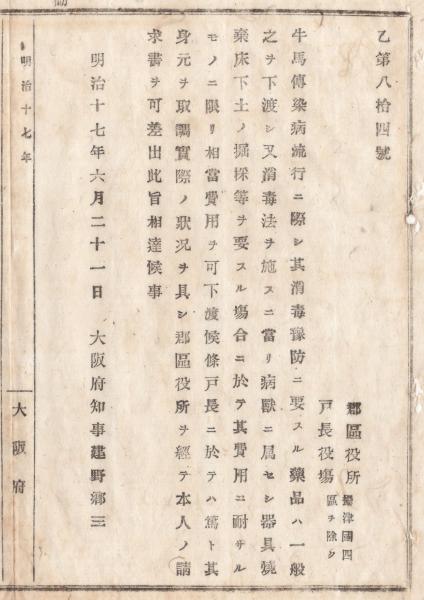 乙第八拾四號
郡區役所
戸長役塲
攝津國四
區ヲ除ク
牛馬傳染病流行ニ際シ其消毒豫防ニ要スル藥品ハ一般
之ヲ下渡シ又消毒法ヲ施スニ當リ病獸ニ属セシ器具燒
棄床下土ノ掘採等ヲ要スル塲合ニ於テ其費用ニ耐サル
モノニ限リ相當費用ヲ可下渡候條戸長ニ於テハ篤ト其
身元ヲ取調實際ノ狀况ヲ具シ郡區役所ヲ經テ本人ノ請
求書ヲ可差出此旨相達候事
明治十七年六月二十一日 大阪府知事建野郷三
明治十七年
大阪府